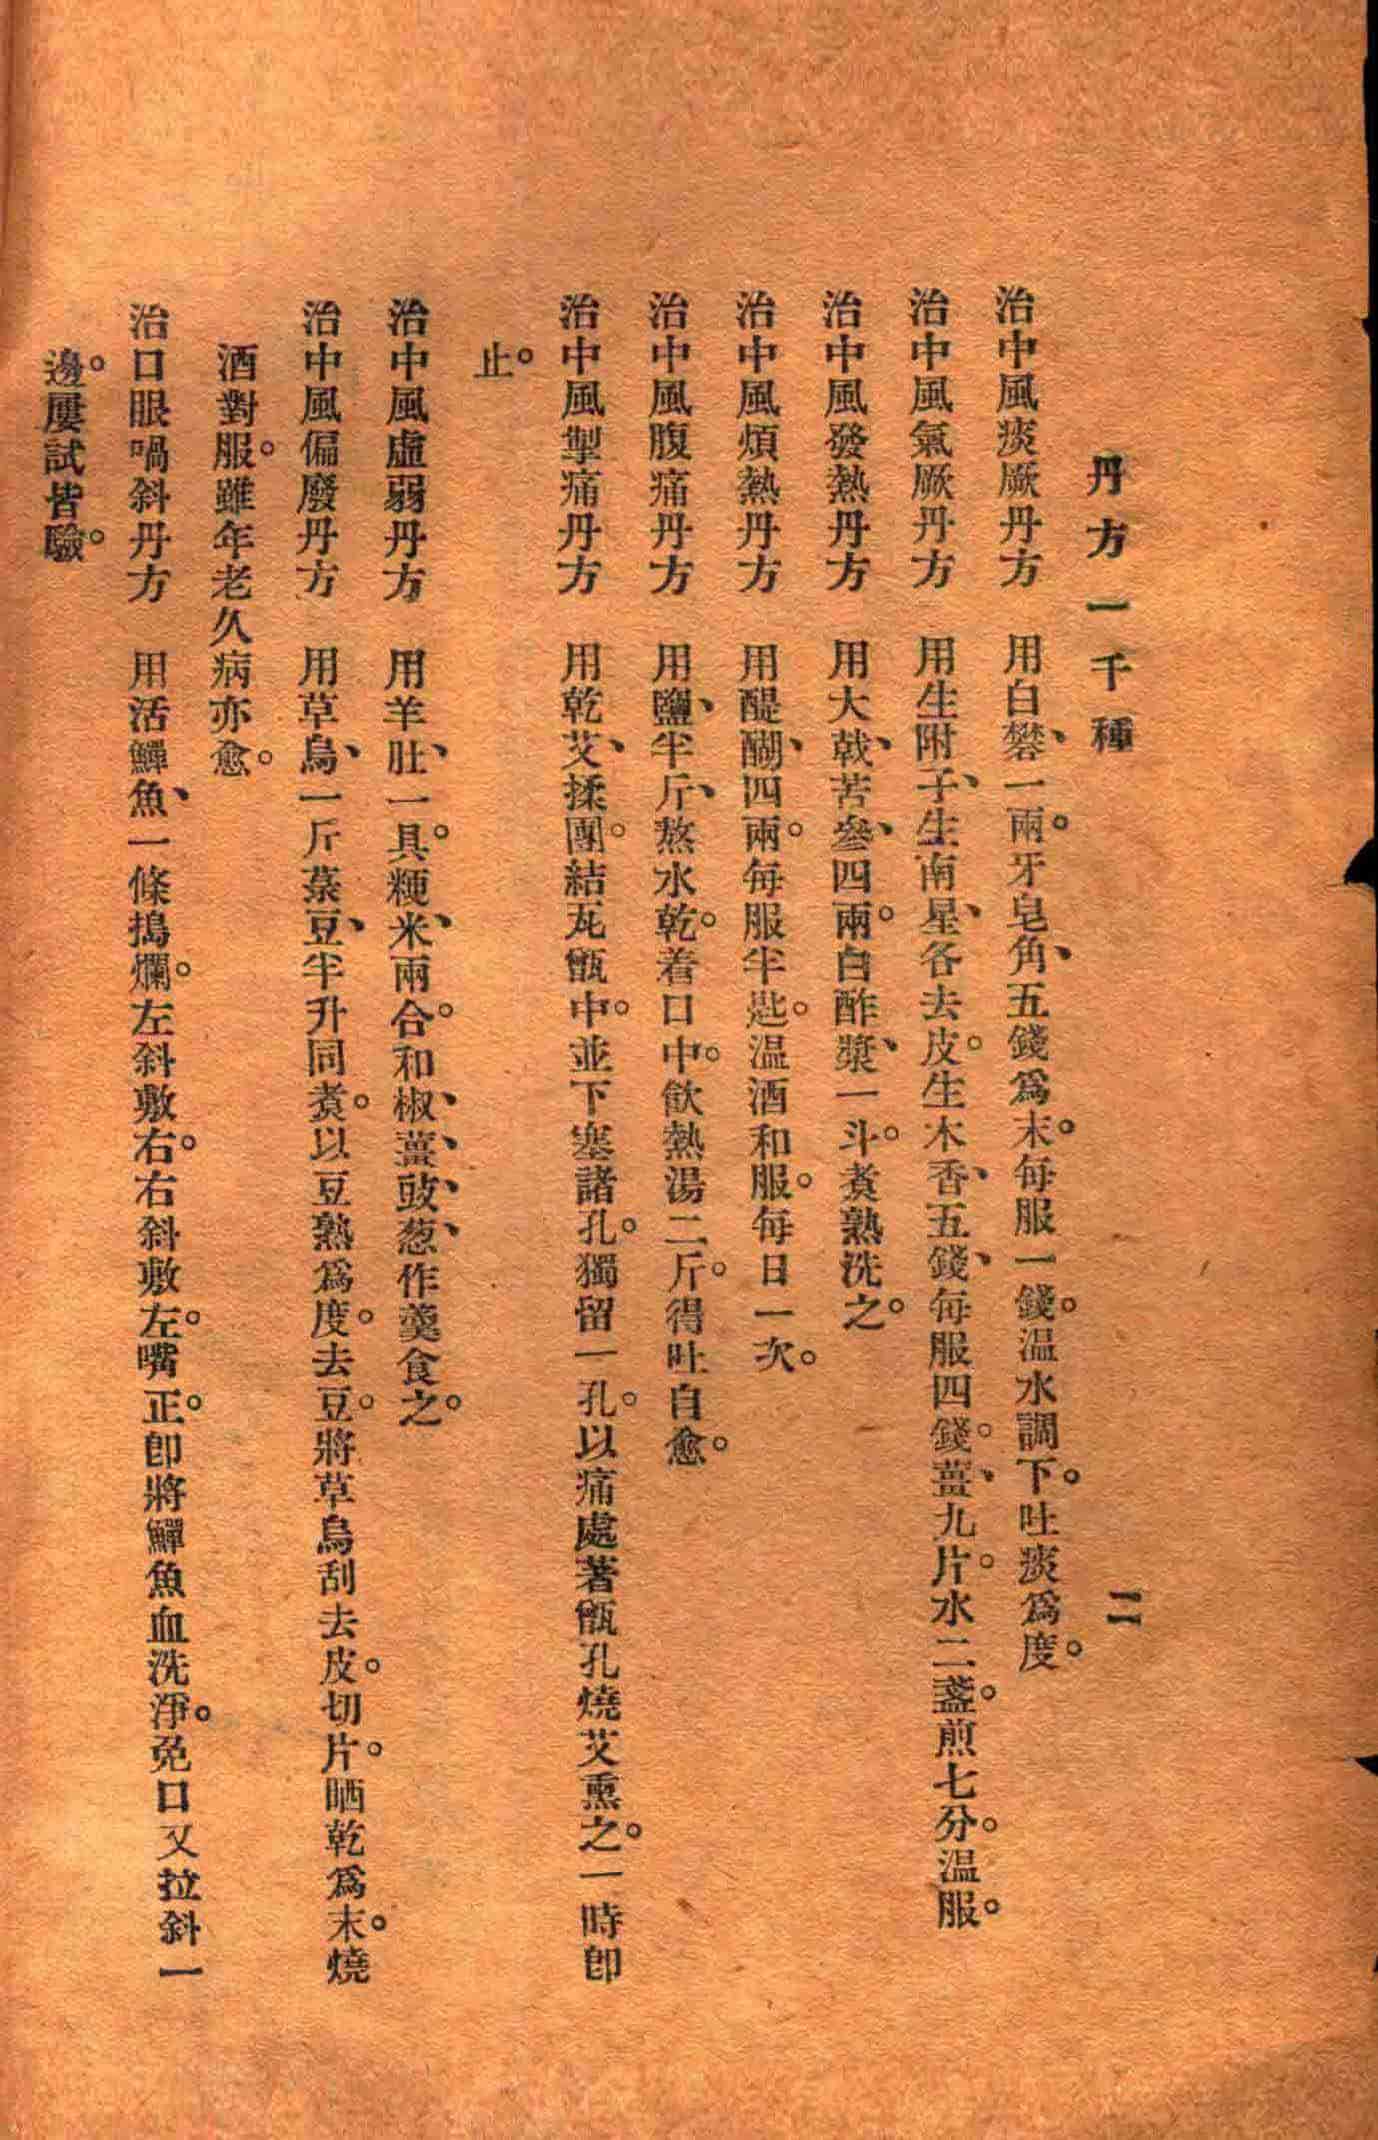 丹方一千種　二
治中風痰厥丹方　用白礬、一兩。牙皂角、五錢爲末。每服一錢。温水調下。吐痰爲度。
治中風氣厥丹方　用生附子、生南星、各去皮。生木香、五錢、每服四錢。薑、九片。水二盞。煎七分。温服。
治中風發熱丹方　用大戟、苦參、四兩。白酢漿、一斗。煑熟洗之。
治中風煩熱丹方　用醍醐、四兩。每服半匙。温酒和服。每日一次。
治中風腹痛丹方　用鹽、半斤、熬水乾。着口中。飲熱湯二斤。得吐自愈。
治中風掣痛丹方　用乾艾、揉團。結瓦甑中。並下塞諸孔。獨留一孔。以痛處著甑孔燒艾熏之。一時卽
止。
治中風虛弱丹方　用羊肚、一具。粳米、兩合。和椒、薑、豉、葱、作羹食之。
治中風偏廢丹方　用草烏、一斤菉豆、半升同煑。以豆熟爲度。去豆。將草烏刮去皮。切片。晒乾爲末。燒
酒對服。雖年老久病亦愈。
治口眼喎斜丹方　用活鱓魚、一條搗爛。左斜敷右。右斜敷左。嘴正。卽將鱓魚血洗淨。免口又拉斜一
邊。屢試皆驗。